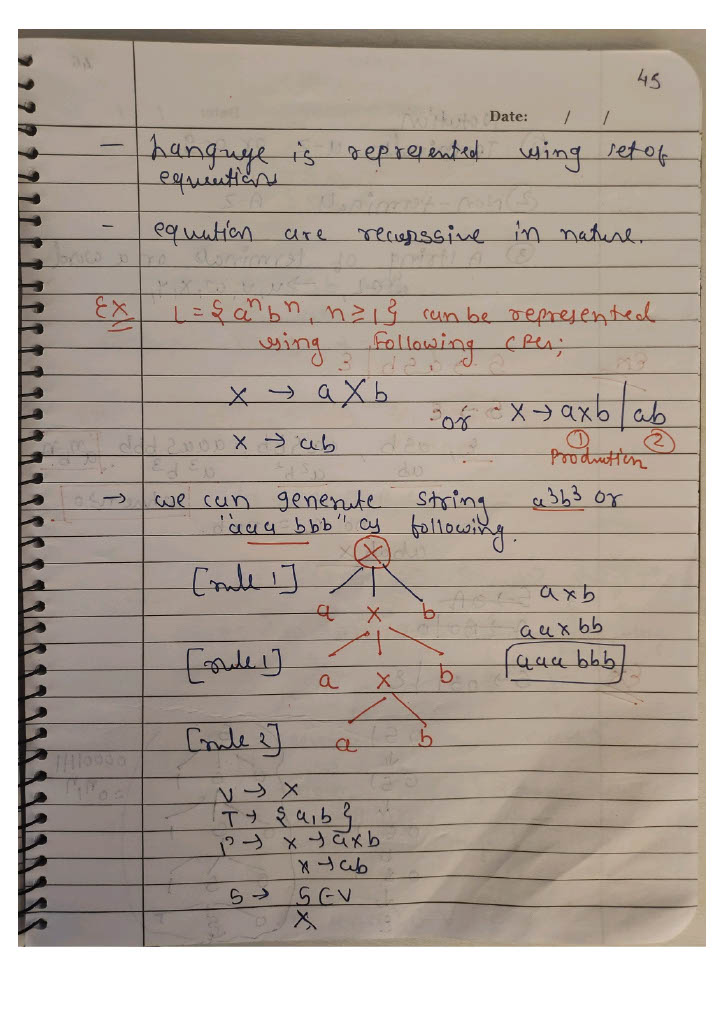 45
Date: / /
— Language is represented using set of
equations
- equation are recurssive in nature.
Ex L = { aⁿbⁿ, n ≥ 1 } can be represented
using following CFG;
X → aXb
or X → axb | ab
X → ab
① ②
Production
→ we can generate string a³b³ or
"aaa bbb" as following.
X
[rule 1]
a x b
axb
aaxbb
[rule 1]
a x b
aaa bbb
[rule 2]
a b
V → X
T → { a, b }
P → x → axb
x → ab
S → S ∈ V
X